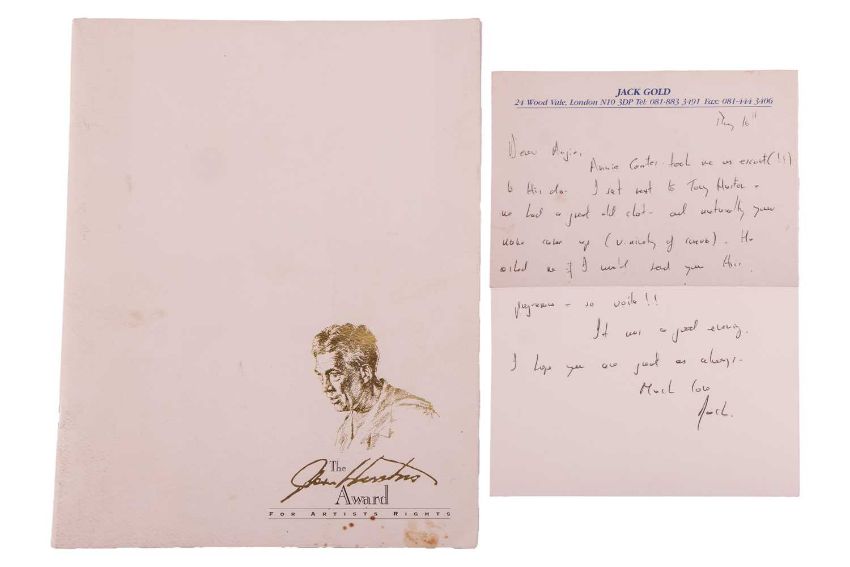 The
John Huston
Award
FOR ARTISTS RIGHTS
JACK GOLD
24 Wood Vale, London N10 3DP Tel: 081-883 3491 Fax: 081-444 3406
May 16th
Dear Angie,
Annie Conter took me as escort (!!)
to this do. I sat next to Tony Huston -
we had a good old chat - and naturally your
name came up (
). He
asked me if I would send you this
programme - so voila!!
It was a good evening.
I hope you are good as always.
Much love
Jack.